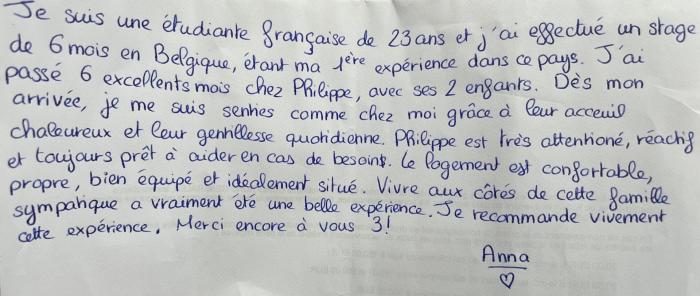 Je suis une étudiante française de 23 ans et j'ai effectué un stage
de 6 mois en Belgique, étant ma 1ère expérience dans ce pays. J'ai
passé 6 excellents mois chez Philippe, avec ses 2 enfants. Dès mon
arrivée, je me suis senties comme chez moi grâce à leur acceuil
chaleureux et leur gentillesse quotidienne. Philippe est très attentioné, réactif
et toujours prêt à aider en cas de besoins. Le logement est confortable,
propre, bien équipé et idéalement situé. Vivre aux côtés de cette famille
sympatique a vraiment été une belle expérience. Je recommande vivement
cette expérience. Merci encore à vous 3!
Anna
♡